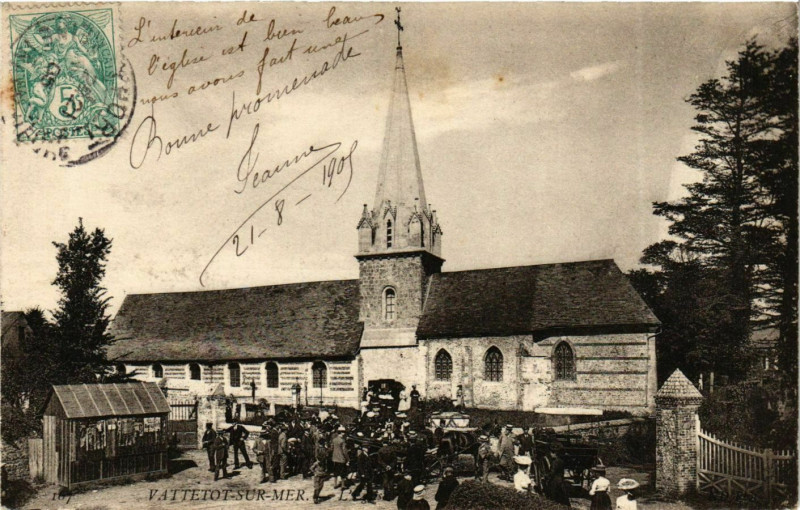 L'intérieur de
l'église est bien beau
nous avons fait une
Bonne promenade
Jeanne
21-8-1905
5
POSTES
167 VATTETOT-SUR-MER.